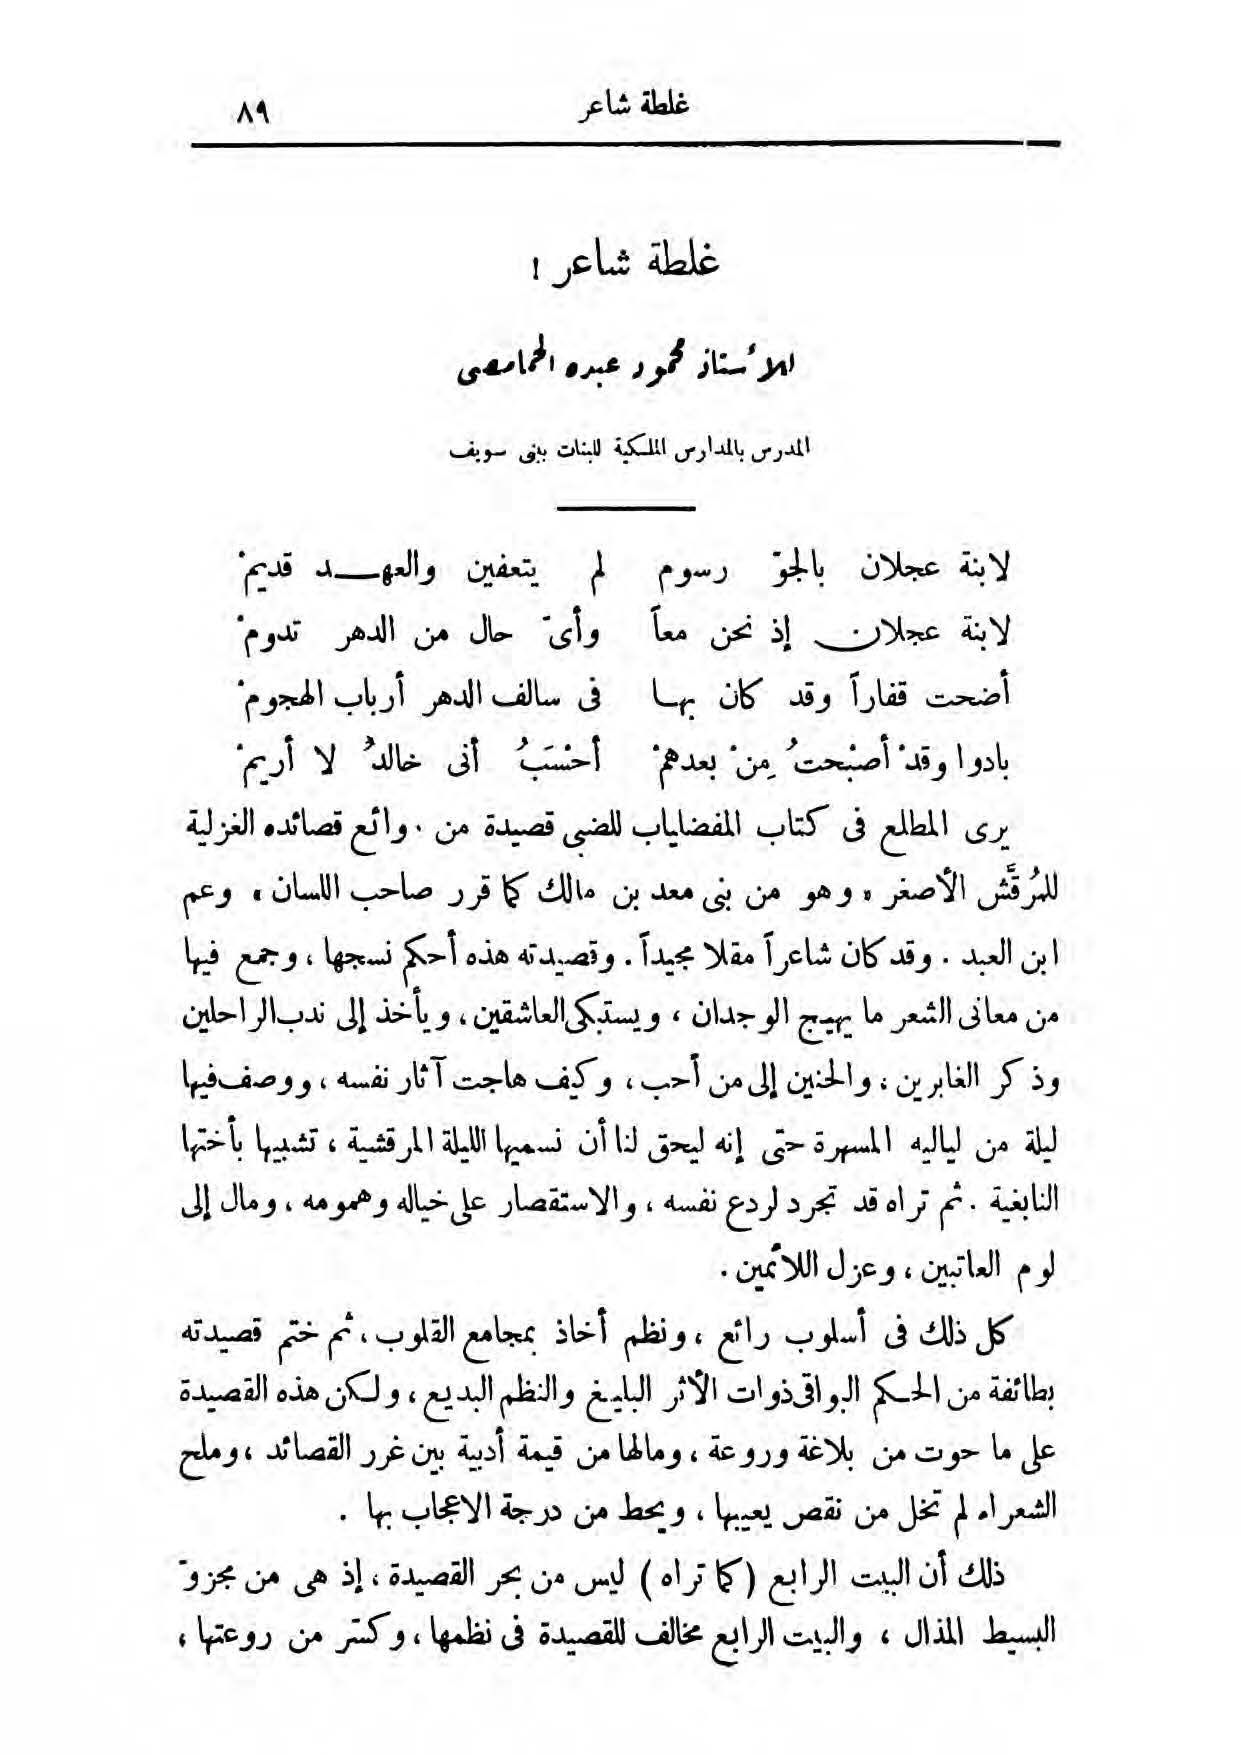 غلطة شاعر ٨٩
غلطة شاعر !
للأستاذ محمود عبده الحمامصى
المدرس بالمدارس الملكية للبنات ببنى سويف
لابنة عجلان بالجوّ رسوم لم يتعفين والعهـــد قديمْ
لابنة عجلان إذ نحن معاً وأىّ حال من الدهر تدومْ
أضحت قفاراً وقد كان بهـا فى سالف الدهر أرباب الهجومْ
بادوا وقدْ أصبْحتُ مِنْ بعدهمْ أحْسَبُ أنى خالدُ لا أريمْ
يرى المطلع فى كتاب المفضلياب للضبى قصيدة من روائع قصائده الغزلية
للمُرقَّش الأصغر ، وهو من بنى معد بن مالك كما قرر صاحب اللسان ، وعم
ابن العبد . وقد كان شاعراً مقلا مجيداً . وقصيدته هذه أحكم نسجها ، وجمع فيها
من معانى الشعر ما يهيج الوجدان ، ويستبكى العاشقين ، ويأخذ إلى ندب الراحلين
وذكر الغابرين ، والحنين إلى من أحب ، وكيف هاجت آثار نفسه ، ووصف فيها
ليلة من لياليه المسهرة حتى إنه ليحق لنا أن نسميها الليلة المرقشية ، تشبيها بأختها
النابغية . ثم تراه قد تجرد لردع نفسه ، والاستقصار على خياله وهمومه ، ومال إلى
لوم العاتبين ، وعزل اللائمين .
كل ذلك فى أسلوب رائع ، ونظم أخاذ بمجامع القلوب ، ثم ختم قصيدته
بطائفة من الحكم البواقى ذوات الأثر البليغ والنظم البديع ، ولكن هذه القصيدة
على ما حوت من بلاغة وروعة ، ومالها من قيمة أدبية بين غرر القصائد ، وملح
الشعراء لم تخل من نقص يعيبها ، ويحط من درجة الاعجاب بها .
ذلك أن البيت الرابع ( كما تراه ) ليس من بحر القصيدة ، إذ هى من مجزوّ
البسيط المذال ، والبيت الرابع مخالف للقصيدة فى نظمها ، وكسّر من روعتها ،